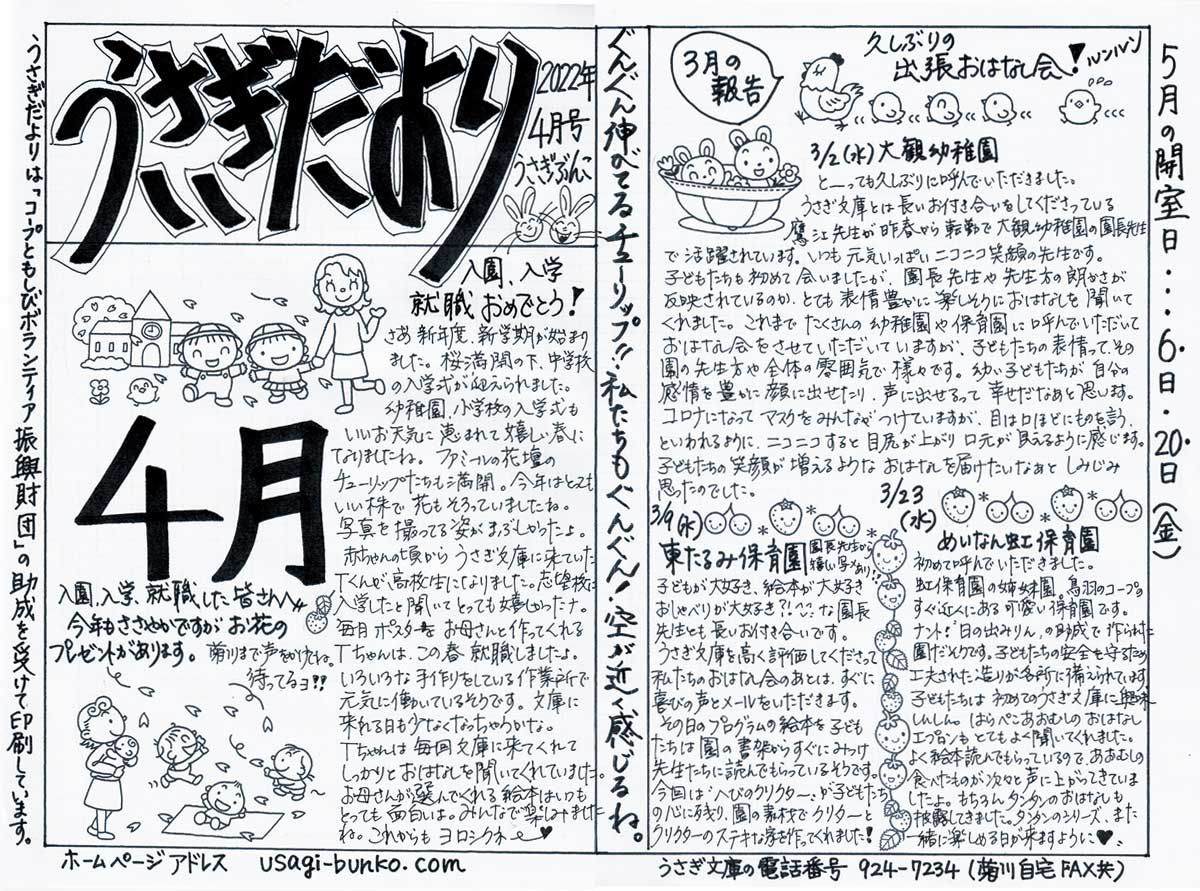 うさぎだより
2022年
4月号
うさぎぶんこ
うさぎだよりは「コープともしびボランティア振興財団」の助成を受けて印刷しています。
入園、入学
就職おめでとう!
さあ新年度、新学期が始まり
ました。桜満開の下、中学校
の入学式が迎えられました。
幼稚園、小学校の入学式も
いいお天気に恵まれて嬉しい春に
なりましたね。ファミールの花壇の
チューリップたちも満開。今年はとても
いい株で花もそろっていましたね。
写真を撮ってる姿がまぶしかったよ。
赤ちゃんの頃からうさぎ文庫に来ていた
Tくんが高校生になりました。志望校に
入学したと聞いてとっても嬉しかったナ。
毎月ポスターをお母さんと作ってくれる
Tちゃんは、この春就職しましたよ。
いろいろな手作りをしている作業所で
元気に働いているそうです。文庫に
来れる日も少なくなっちゃうかな。
Tちゃんは毎回文庫に来てくれて
しっかりとおはなしを聞いてくれていました。
お母さんが選んでくれる絵本はいつも
とっても面白いよ。みんなで楽しみました
ね。これからもヨロシクネー♥
4月
入園、入学、就職した皆さんへ
今年もささやかですがお花の
プレゼントがあります。菊川まで声をかけてね。
待ってるヨ??
ホームページアドレス usagi-bunko.com
ぐんぐん伸びてるチューリップ!!私たちもぐんぐん!空が近く感じるね。
3月の
報告
久しぶりの
出張おはなし会!
ルンルン
3/2(水)大観幼稚園
とーっても久しぶりに呼んでいただきました。
うさぎ文庫とは長いお付き合いをしてくださっている
鷹江先生が昨春から転勤で大観幼稚園の園長先生
で活躍されています。いつも元気いっぱいニコニコ笑顔の先生です。
子どもたちも初めて会いましたが、園長先生や先生方の朗かさが
反映されているのか、とても表情豊かに楽しそうにおはなしを聞いて
くれました。これまでたくさんの幼稚園や保育園に呼んでいただいて
おはなし会をさせていただいていますが、子どもたちの表情って、その
園の先生方や全体の雰囲気で様々です。幼い子どもたちが自分の
感情を豊かに顔に出せたり、声に出せるって幸せだなぁと思います。
コロナになってマスクをみんながつけていますが、目は口ほどにものを言う、
といわれるように、ニコニコすると目尻が上がり口元が見えるように感じます。
子どもたちの笑顔が増えるようなおはなしを届けたいなぁとしみじみ
思ったのでした。
3/9(水)
東たるみ保育園
園長先生から
嬉しい
子どもが大好き、絵本が大好き
おしゃべりが大好き?!〜〜な園長
先生とも長いお付き合いです。
うさぎ文庫を高く評価してくださって
私たちのおはなし会のあとは、すぐに
喜びの声とメールをいただきます。
その日のプログラムの絵本を子ども
たちは園の書架からすぐにみつけ
先生たちに読んでもらっているそうです。
今回は「へびのクリクター」が子どもたち
の心に残り、園の素材でクリクターと
クリクターのステキなを作ってくれました!
3/23
(水)
めいなん虹保育園
初めて呼んでいただきました。
虹保育園の姉妹園。鳥羽のコープの
すぐ近くにある可愛い保育園です。
ナント!"日の出みりん"の助成で作られた
園だそうです。子どもたちの安全を守るため
工夫された造りが各所に備えられてます。
子どもたちは初めてのうさぎ文庫に興味
しんしん。はらぺこあおむしのおはなし
エプロンもとてもよく聞いてくれました。
よく絵本読んでもらっているので、あおむしの
食べたものが次々と声に上がってきていま
したよ。もちろんタンタンのおはなしも
披露してきました。タンタンのシリーズ、また
一緒に楽しめる日が来ますように♥
うさぎ文庫の電話番号 924-7234(菊川自宅FAX共)
5月の開室日...6日・20日(金)